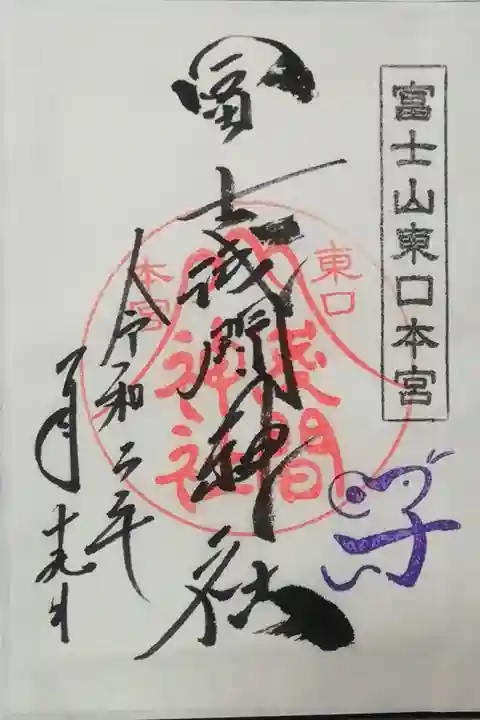 富士山東口本宮
冨士浅間神社
東口
本宮
浅間
神社
令和二年
一月十九日
子